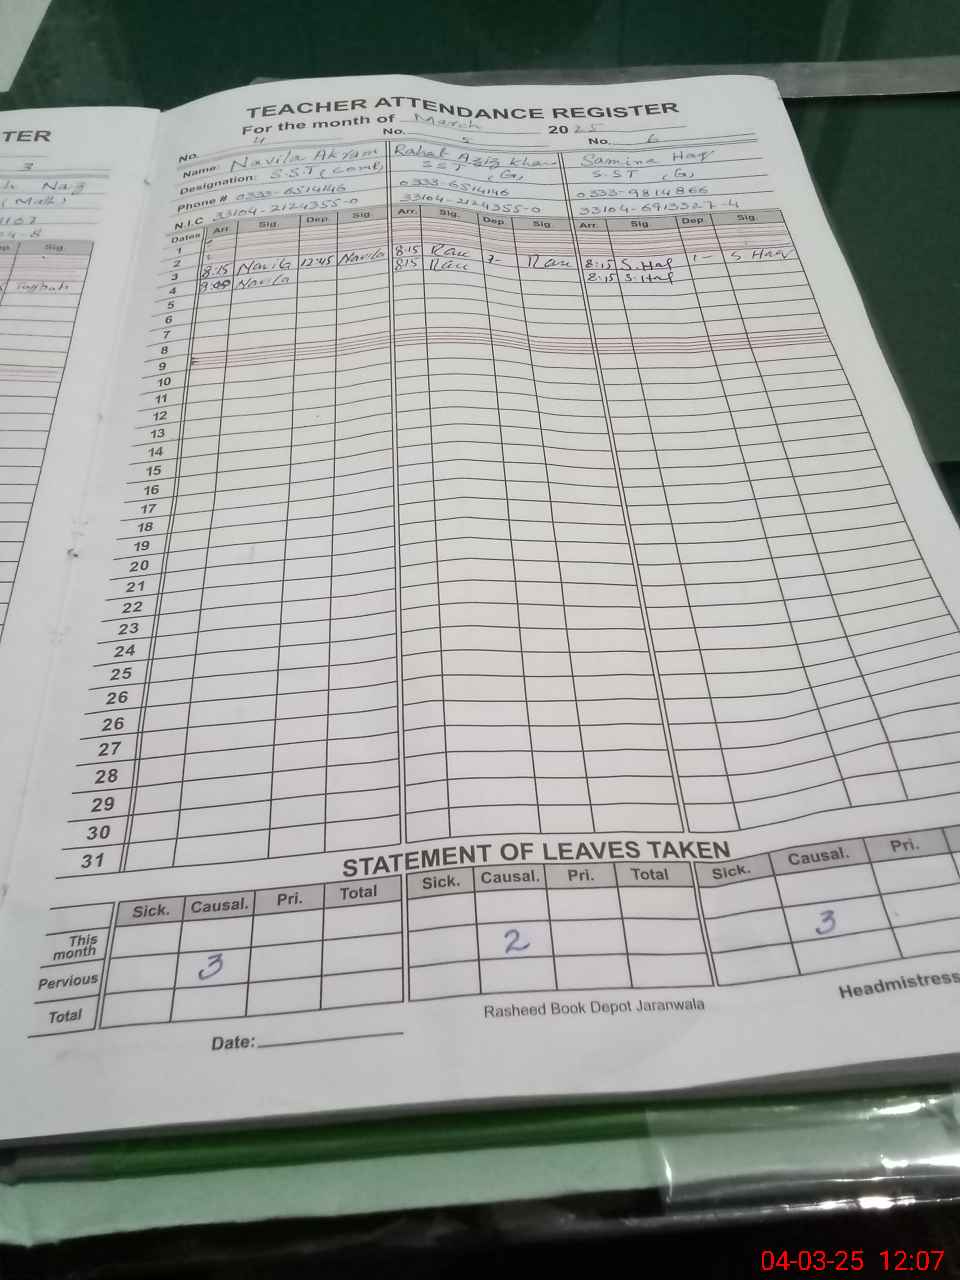 TER
3
Naz
(Math)
TEACHER ATTENDANCE REGISTER
For the month of March 2025
No. 4 No. 5 No. 6
Name: Navila Akram Rahat Aziz Khan Samina Haq
Designation: S.S.T (Comb) S.S.T (G) S.S.T (G)
Phone # 0333-6514146 0333-6514146 0333-9814866
N.I.C 33104-2124355-0 33104-2124355-0 33104-6913327-4
Dates Arr. Sig. Dep. Sig. Arr. Sig. Dep. Sig. Arr. Sig. Dep. Sig.
1
2
3 8:15 Navila 12:45 Navila 8:15 8:15 S.Haq 1- S Haq
4 Navila 8:15 8:15 S.Haq
5
6
7
8
9
10
11
12
13
14
15
16
17
18
19
20
21
22
23
24
25
26
26
27
28
29
30
31
STATEMENT OF LEAVES TAKEN
Sick. Causal. Pri. Total Sick. Causal. Pri. Total Sick. Causal. Pri.
This month
Pervious 3 2 3
Total
Date:
Rasheed Book Depot Jaranwala
Headmistress
04-03-25 12:07